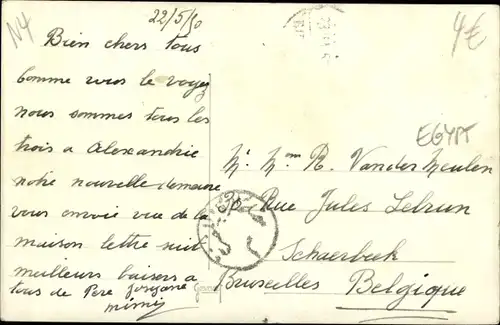 N4
22/5/50
4€
Bien chers tous
Comme vous le voyez
nous sommes tous les
trois a Alexandrie
notre nouvelle demeure
vous envoie vue de la
maison lettre suit
meilleurs baisers a
tous de Pere
mimi
EGYPT
Mr. Mme R. Vander Meulen
Rue Jules Lebrun
Schaerbeek
Bruxelles Belgique